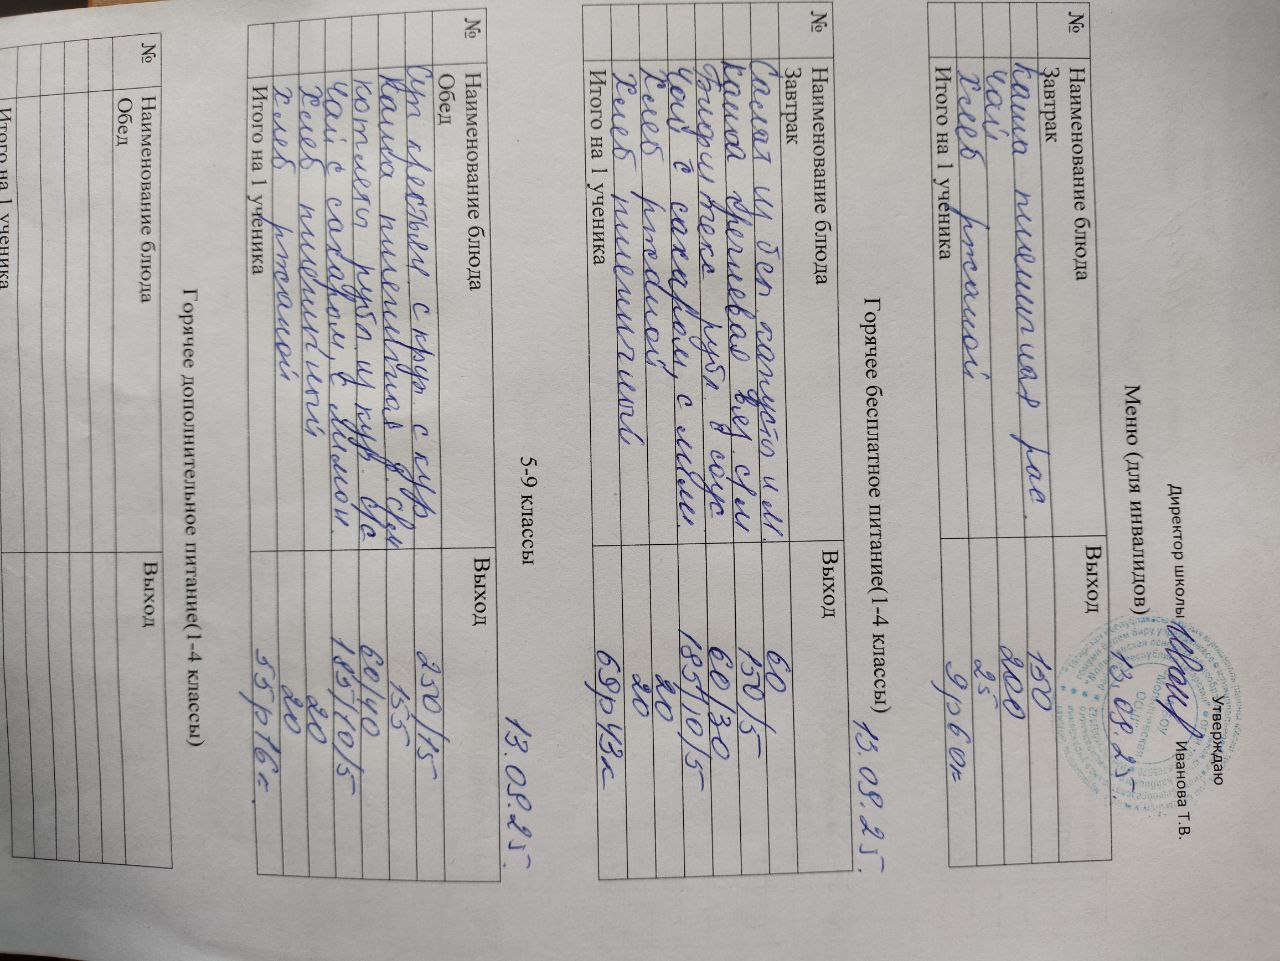 Утверждаю
Директор школы Иванова Т.В.
13.09.25.
Меню (для инвалидов)
№ Наименование блюда Выход
Завтрак
каша пшеничная рас. 150
чай 200
хлеб ржаной 25
Итого на 1 ученика 9р60к
Горячее бесплатное питание(1-4 классы) 13.09.25.
№ Наименование блюда Выход
Завтрак
Салат из бел капусты и м. 60
каша гречневая вяз. слм 150/5
рубл в соус 60/30
чай с сахаром, с лим. 185/10/5
Хлеб ржаной 20
Хлеб пшеничный 20
Итого на 1 ученика 69р43к
5-9 классы 13.09.25.
№ Наименование блюда Выход
Обед
Суп крестьян с круп с кур 250/15
Каша пшеничная в. слм 155
котлеты рубл из кур. 60/40
чай с сахаром, с лимон. 185/10/5
Хлеб пшеничный 20
хлеб ржаной 20
Итого на 1 ученика 55р16к.
Горячее дополнительное питание(1-4 классы)
№ Наименование блюда Выход
Обед
Итого на 1 ученика